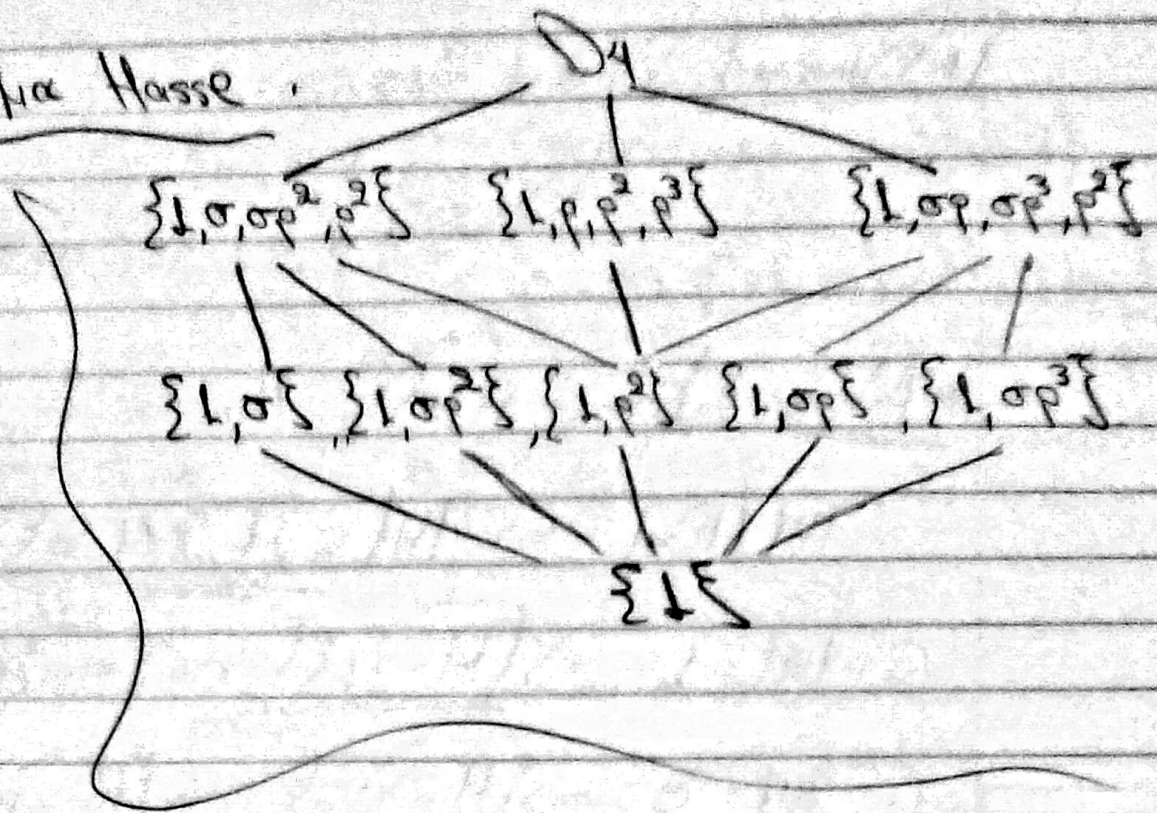 μα Hasse .
D4
{1,σ,σρ²,ρ²} {1,ρ,ρ²,ρ³} {1,σρ,σρ³,ρ²}
{1,σ} , {1,σρ²} , {1,ρ²} {1,σρ} , {1,σρ³}
{1}